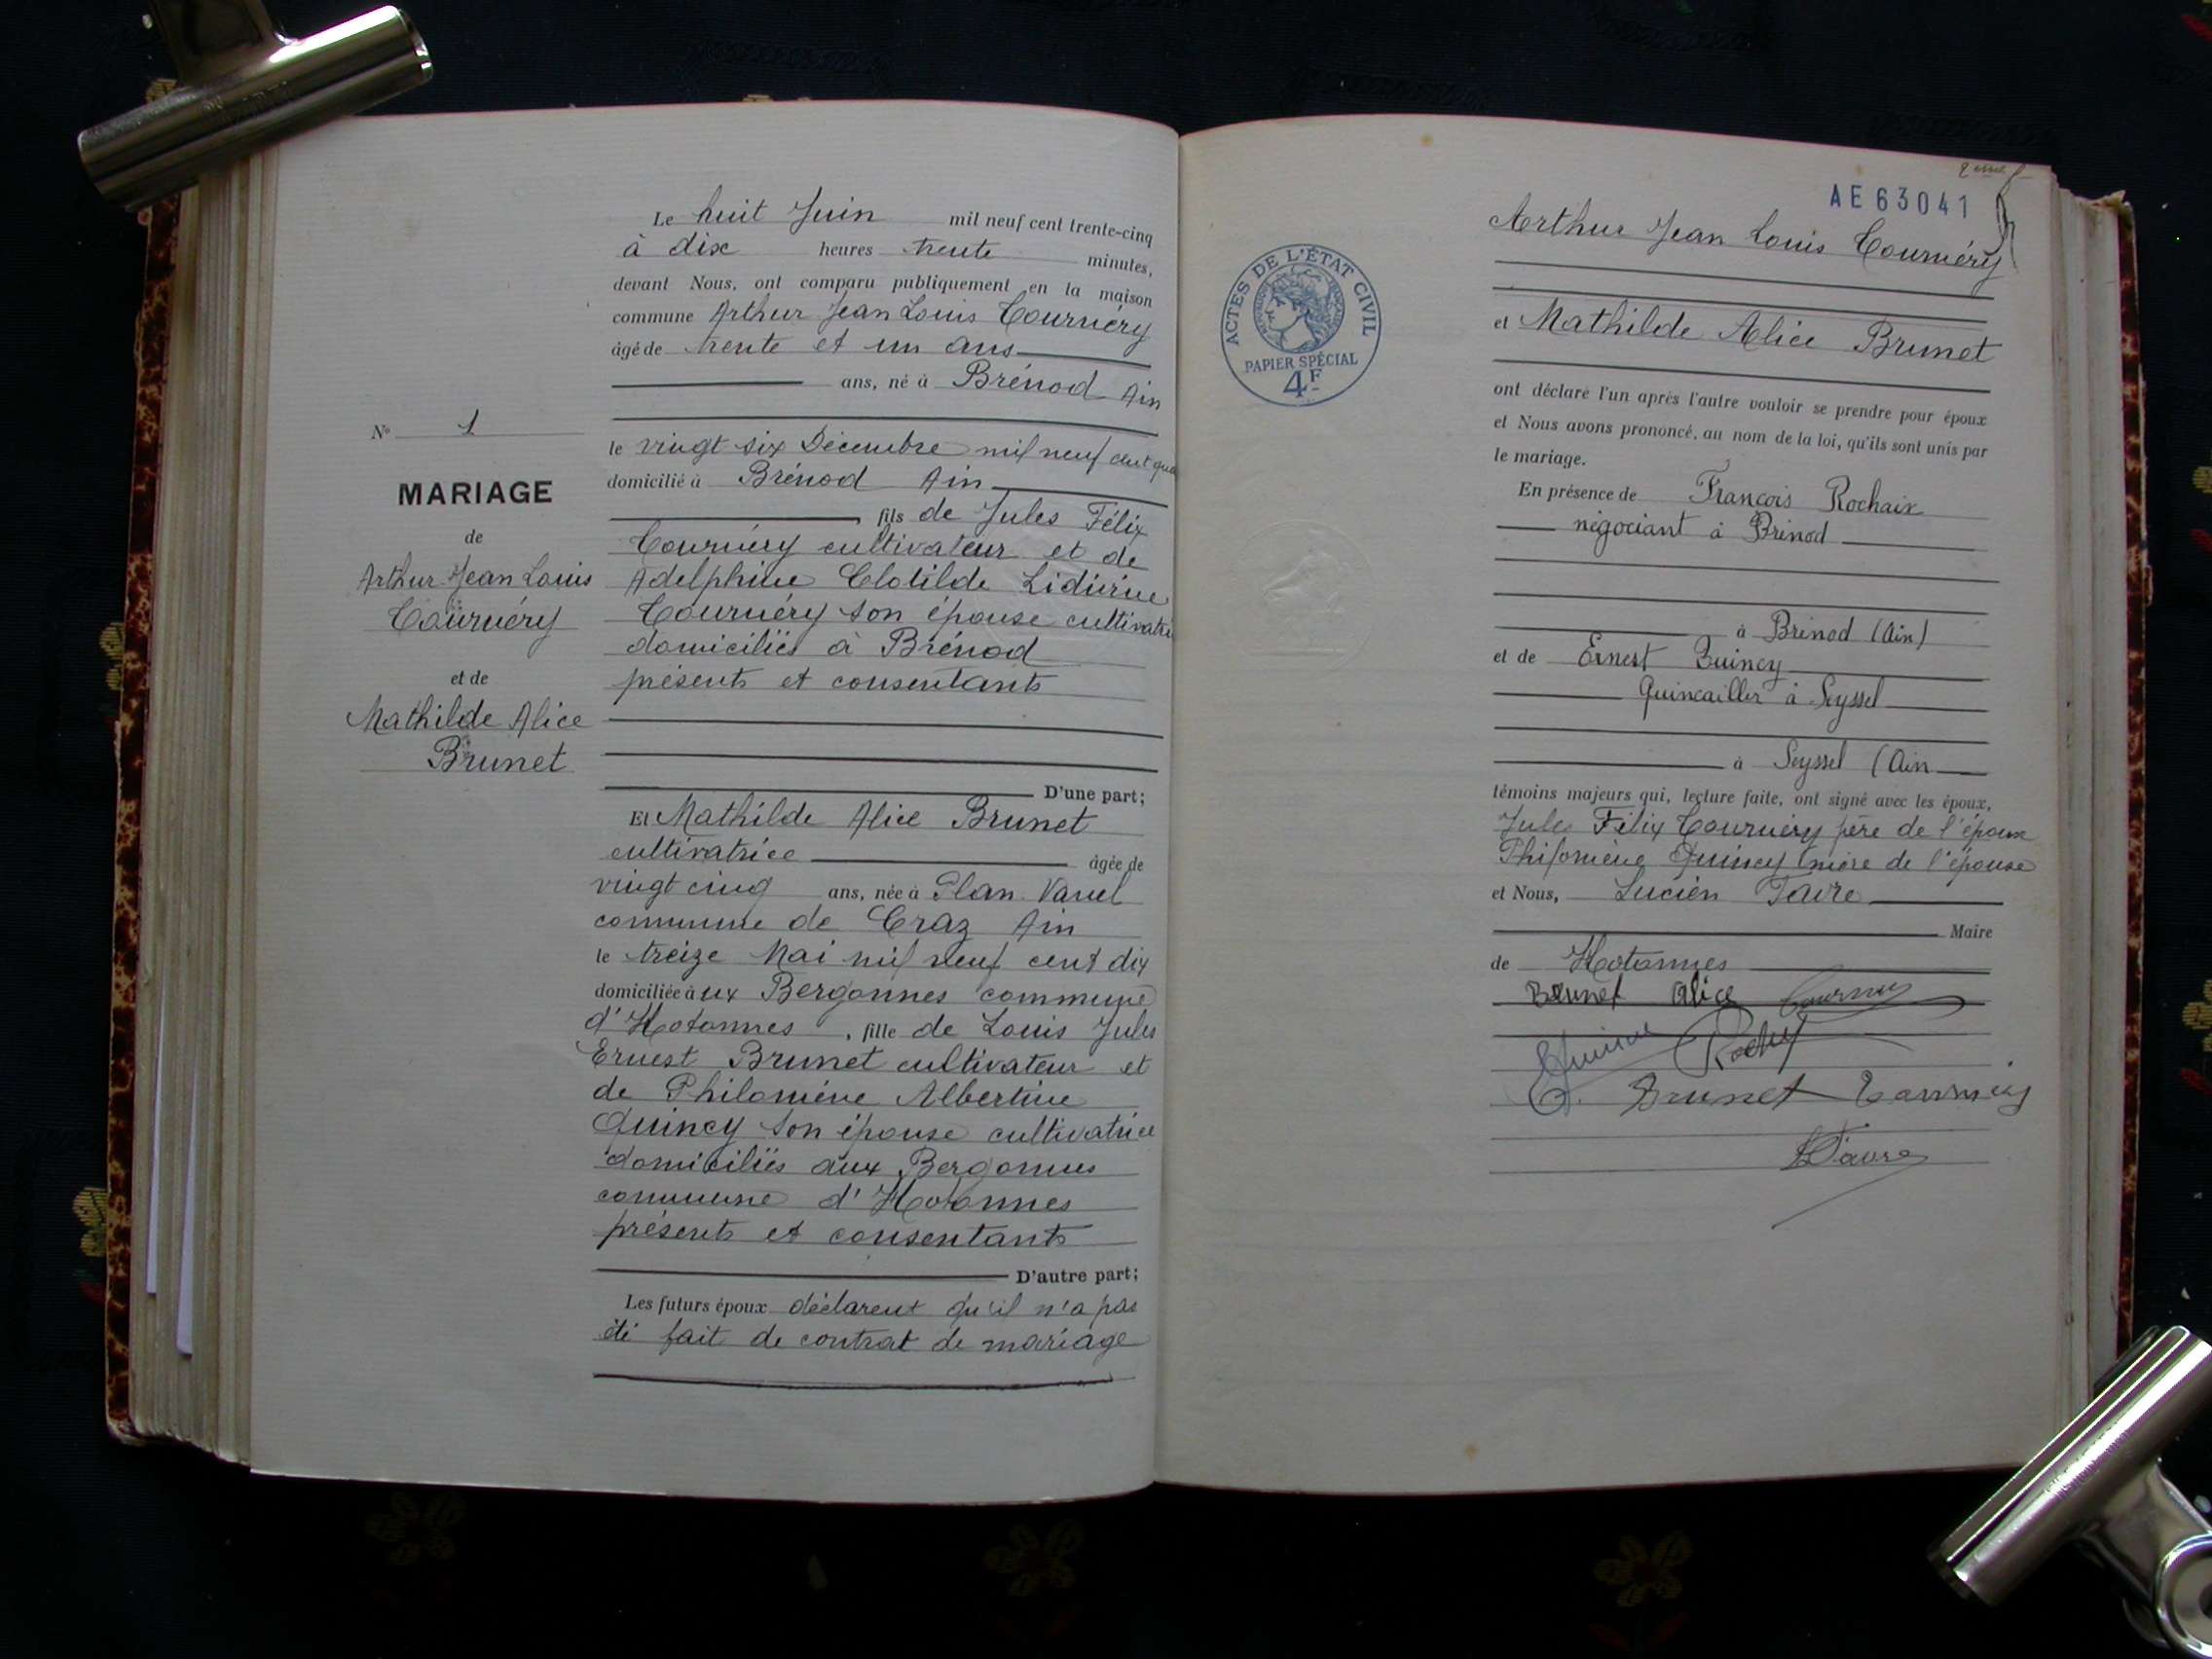 Le huit Juin mil neuf cent trente-cinq
à dix heures trente minutes,
devant Nous, ont comparu publiquement en la maison
commune Arthur Jean Louis Tournéry
âgé de trente et un ans
ans, né à Brénod Ain
le vingt six Décembre mil neuf cent
domicilié à Brénod Ain
fils de Jules Félix
Tournéry cultivateur et de
Adelphine Clotilde
Tournéry son épouse
domiciliés à Brénod
présents et consentants
D'une part;
Et Mathilde Alice Brunet
cultivatrice âgée de
vingt cinq ans, née à Plan Vanel
commune de Craz Ain
le treize Mai mil neuf cent dix
domiciliée aux Bergonnes commune
d'Hotonnes, fille de Louis Jules
Ernest Brunet cultivateur et
de Philomène Albertine
Quincy son épouse cultivatrice
domiciliés aux Bergonnes
commune d'Hotonnes
présents et consentants
D'autre part;
Les futurs époux déclarent qu'il n'a pas
été fait de contrat de mariage
N° 1
MARIAGE
de
Arthur Jean Louis
Tournéry
et de
Mathilde Alice
Brunet
AE 63041
ACTES DE L'ÉTAT CIVIL
PAPIER SPÉCIAL
4F
Arthur Jean Louis Tournéry
et Mathilde Alice Brunet
ont déclaré l'un après l'autre vouloir se prendre pour époux
et Nous avons prononcé, au nom de la loi, qu'ils sont unis par
le mariage.
En présence de François Rochaix
négociant à Brénod
à Brénod (Ain)
et de Ernest Quincy
Quincailler à Seyssel
à Seyssel (Ain
témoins majeurs qui, lecture faite, ont signé avec les époux,
Jules Félix Tournéry père de l'époux
Philomène Quincy mère de l'épouse
et Nous, Lucien Favre
Maire
de Hotonnes
Brunet Alice
Brunet
Favre